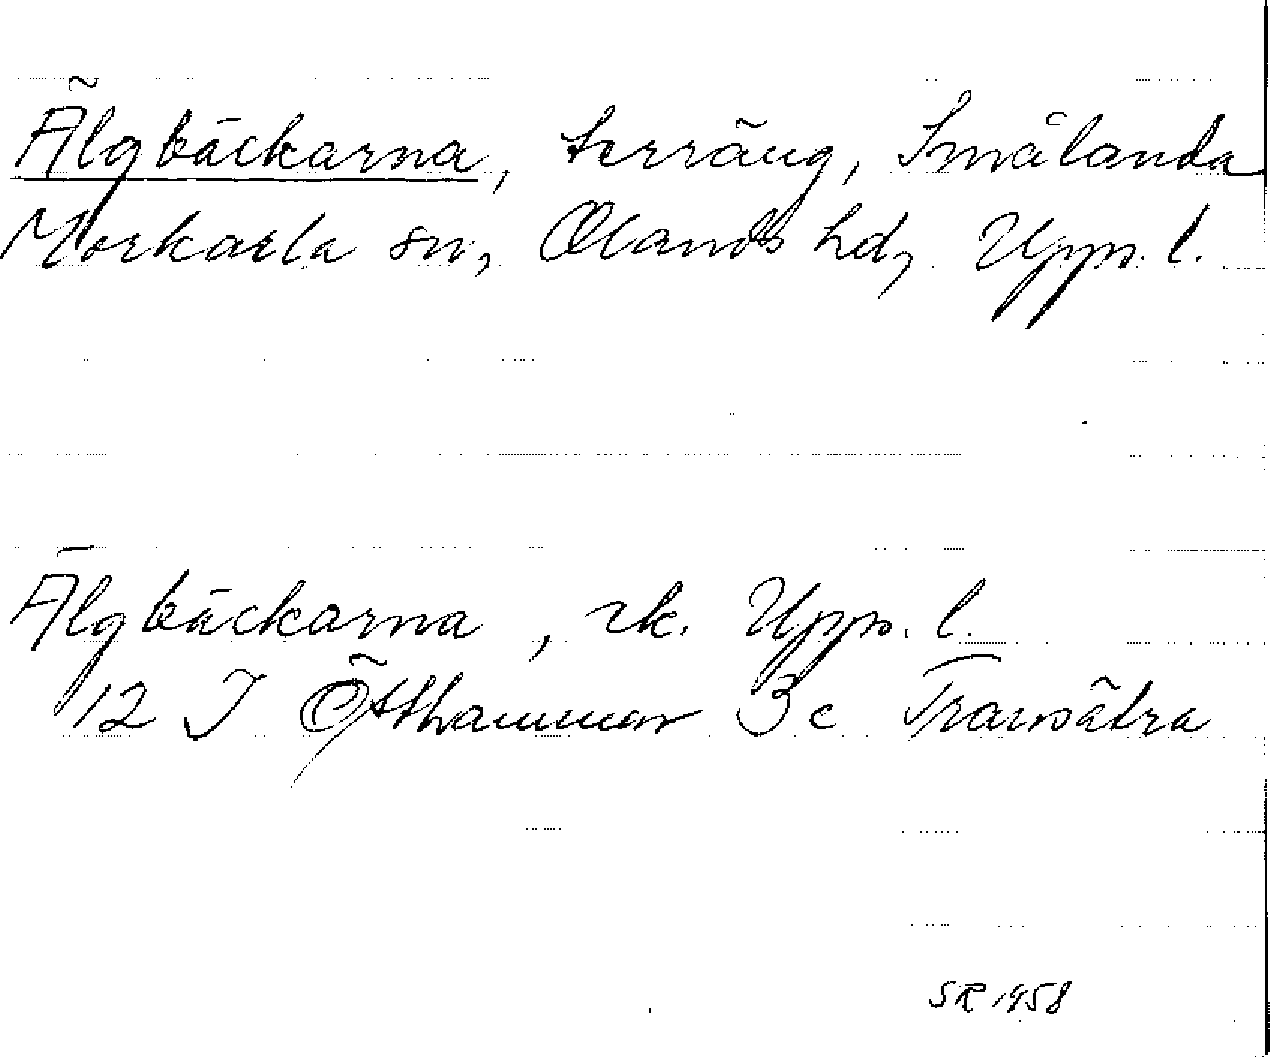 Älgbäckarna, terräng, Smålanda
Morkarla sn, Olands hd, Upps. l.
Älgbäckarna, rk. Upps. l.
12 I Östhammar 3 c Transätra
SR 1958